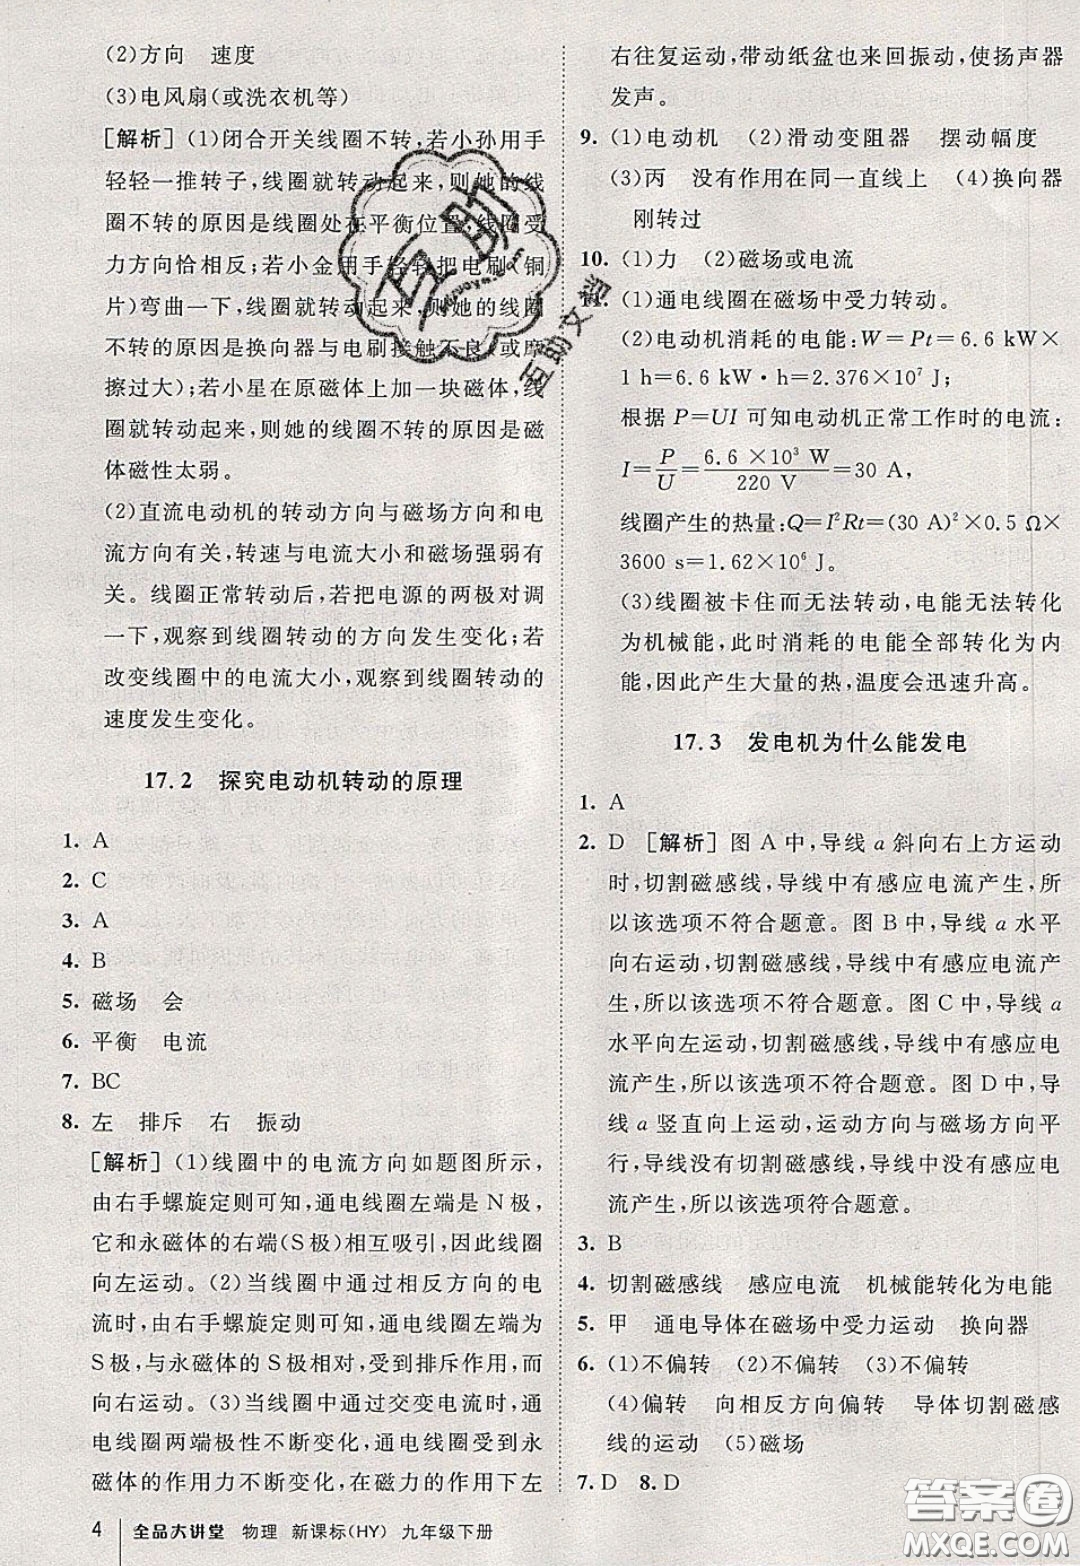 (2)方向　速度
(3)电风扇(或洗衣机等)
[解析](1)闭合开关线圈不转,若小孙用手
轻轻一推转子,线圈就转动起来,则她的线
圈不转的原因是线圈处在平衡位置,线圈受
力方向恰相反;若小金用手轻轻把电刷(铜
片)弯曲一下,线圈就转动起来,则她的线圈
不转的原因是换向器与电刷接触不良(或摩
擦过大);若小星在原磁体上加一块磁体,线
圈就转动起来,则她的线圈不转的原因是磁
体磁性太弱。
(2)直流电动机的转动方向与磁场方向和电
流方向有关,转速与电流大小和磁场强弱有
关。线圈正常转动后,若把电源的两极对调
一下,观察到线圈转动的方向发生变化;若
改变线圈中的电流大小,观察到线圈转动的
速度发生变化。
17.2　探究电动机转动的原理
1. A
2. C
3. A
4. B
5. 磁场　会
6. 平衡　电流
7. BC
8. 左　排斥　右　振动
[解析](1)线圈中的电流方向如题图所示,
由右手螺旋定则可知,通电线圈左端是N极,
它和永磁体的右端(S极)相互吸引,因此线圈
向左运动。(2)当线圈中通过相反方向的电
流时,由右手螺旋定则可知,通电线圈左端为
S极,与永磁体的S极相对,受到排斥作用,而
向右运动。(3)当线圈中通过交变电流时,通
电线圈两端极性不断变化,通电线圈受到永
磁体的作用力不断变化,在磁力的作用下左
右往复运动,带动纸盆也来回振动,使扬声器
发声。
9. (1)电动机　(2)滑动变阻器　摆动幅度
(3)丙　没有作用在同一直线上　(4)换向器
刚转过
10. (1)力　(2)磁场或电流
11. (1)通电线圈在磁场中受力转动。
(2)电动机消耗的电能:W=Pt=6.6 kW×
1 h=6.6 kW·h=2.376×10⁷ J;
根据 P=UI 可知电动机正常工作时的电流:
I=P/U=6.6×10³ W/220 V=30 A,
线圈产生的热量:Q=I²Rt=(30 A)²×0.5 Ω×
3600 s=1.62×10⁶ J。
(3)线圈被卡住而无法转动,电能无法转化
为机械能,此时消耗的电能全部转化为内
能,因此产生大量的热,温度会迅速升高。
17.3　发电机为什么能发电
1. A
2. D　[解析]图A中,导线a斜向右上方运动
时,切割磁感线,导线中有感应电流产生,所
以该选项不符合题意。图B中,导线a水平
向右运动,切割磁感线,导线中有感应电流产
生,所以该选项不符合题意。图C中,导线a
水平向左运动,切割磁感线,导线中有感应电
流产生,所以该选项不符合题意。图D中,导
线a竖直向上运动,运动方向与磁场方向平
行,导线没有切割磁感线,导线中没有感应电
流产生,所以该选项符合题意。
3. B
4. 切割磁感线　感应电流　机械能转化为电能
5. 甲　通电导体在磁场中受力运动　换向器
6. (1)不偏转　(2)不偏转　(3)不偏转
(4)偏转　向相反方向偏转　导体切割磁感
线的运动　(5)磁场
7. D　8. D
4　全品大讲堂　物理　新课标(HY)　九年级下册
互助
互助文智
答案圈
MXQE.COM